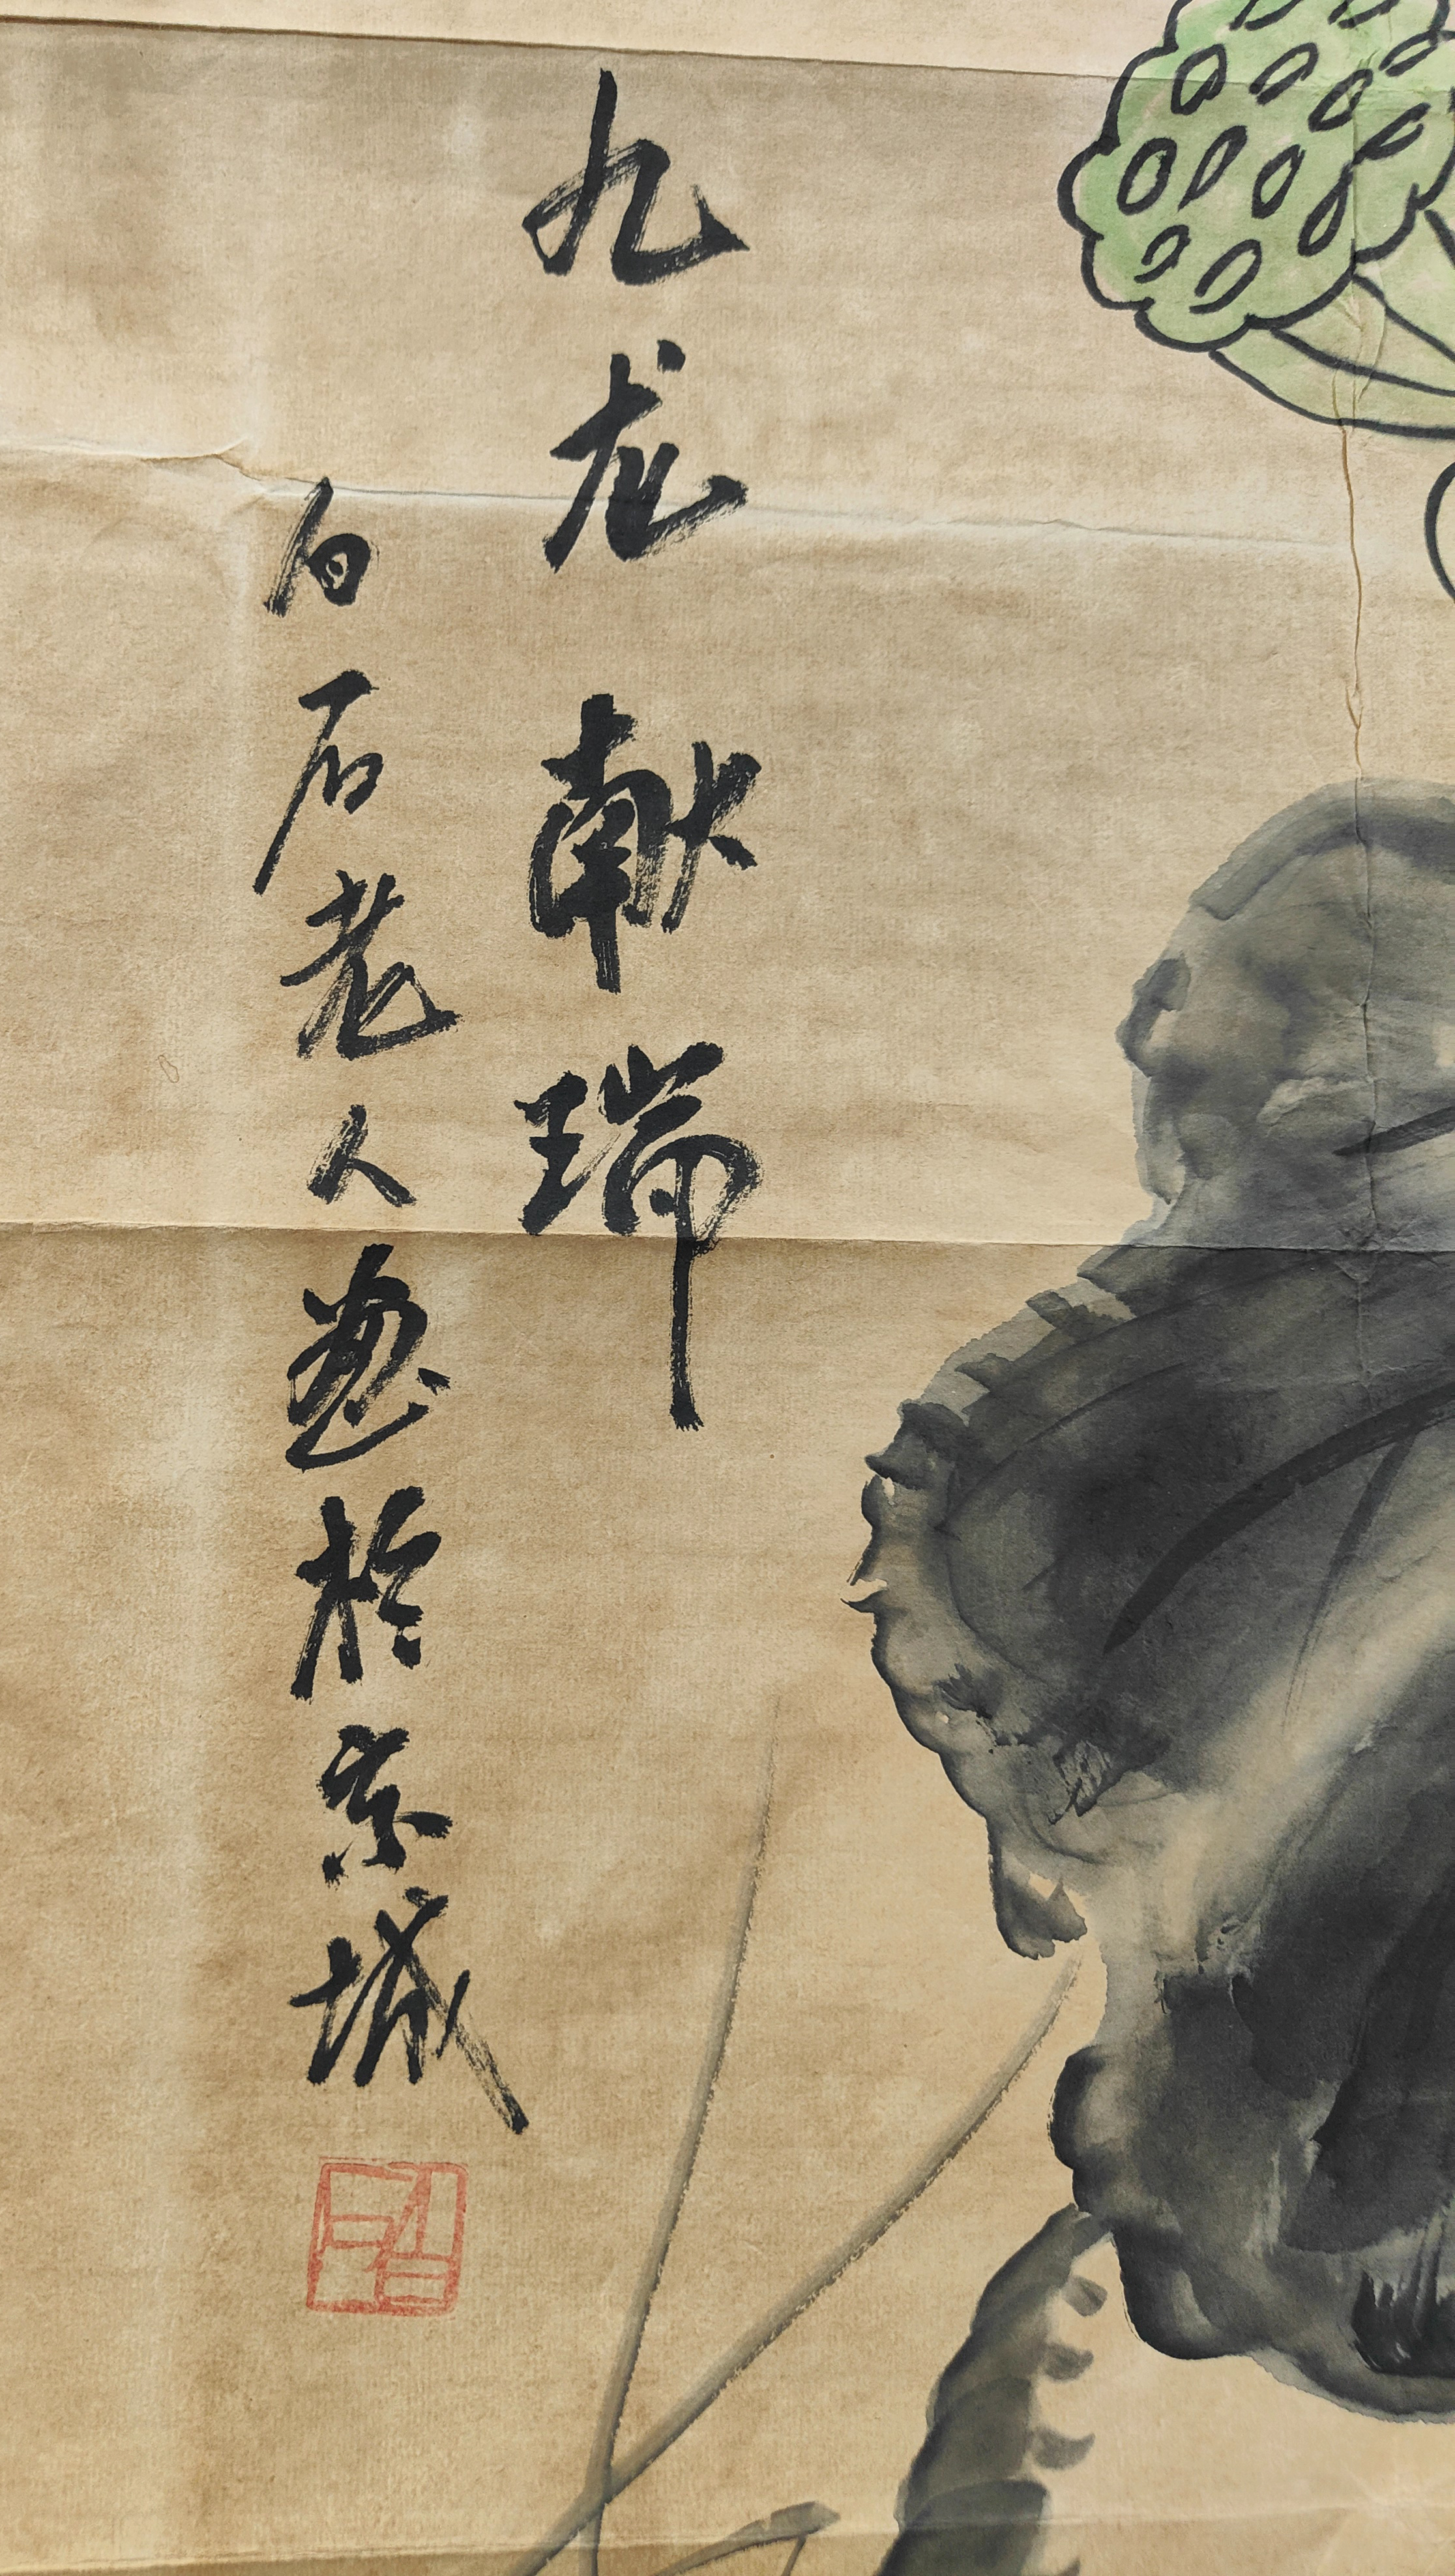 九龙献瑞
白石老人画於京城